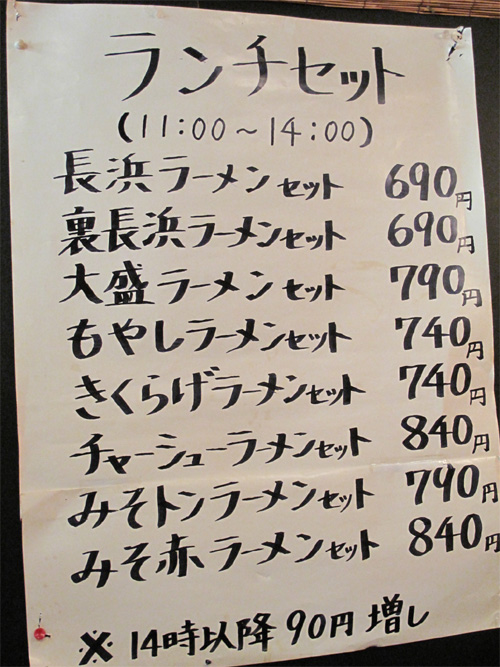 ランチセット
(11:00～14:00)
長浜ラーメンセット 690円
裏長浜ラーメンセット 690円
大盛ラーメンセット 790円
もやしラーメンセット 740円
きくらげラーメンセット 740円
チャーシューラーメンセット 840円
みそトンラーメンセット 790円
みそ赤ラーメンセット 840円
※14時以降90円増し